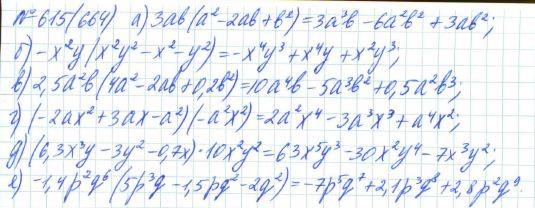 № 615(664) а) 3ab(a²-2ab+b²)=3a³b-6a²b²+3ab²;
б) -x²y(x²y²-x²-y²)=-x⁴y³+x⁴y+x²y³;
в) 2,5a²b(4a²-2ab+0,2b²)=10a⁴b-5a³b²+0,5a²b³;
г) (-2ax²+3ax-a²)(-a²x²)=2a³x⁴-3a³x³+a⁴x²;
д) (6,3x³y-3y²-0,7x)·10x²y²=63x⁵y³-30x²y⁴-7x³y²;
е) -1,4p²q⁶(5p³q-1,5pq²-2q³)=-7p⁵q⁷+2,1p³q⁸+2,8p²q⁹.